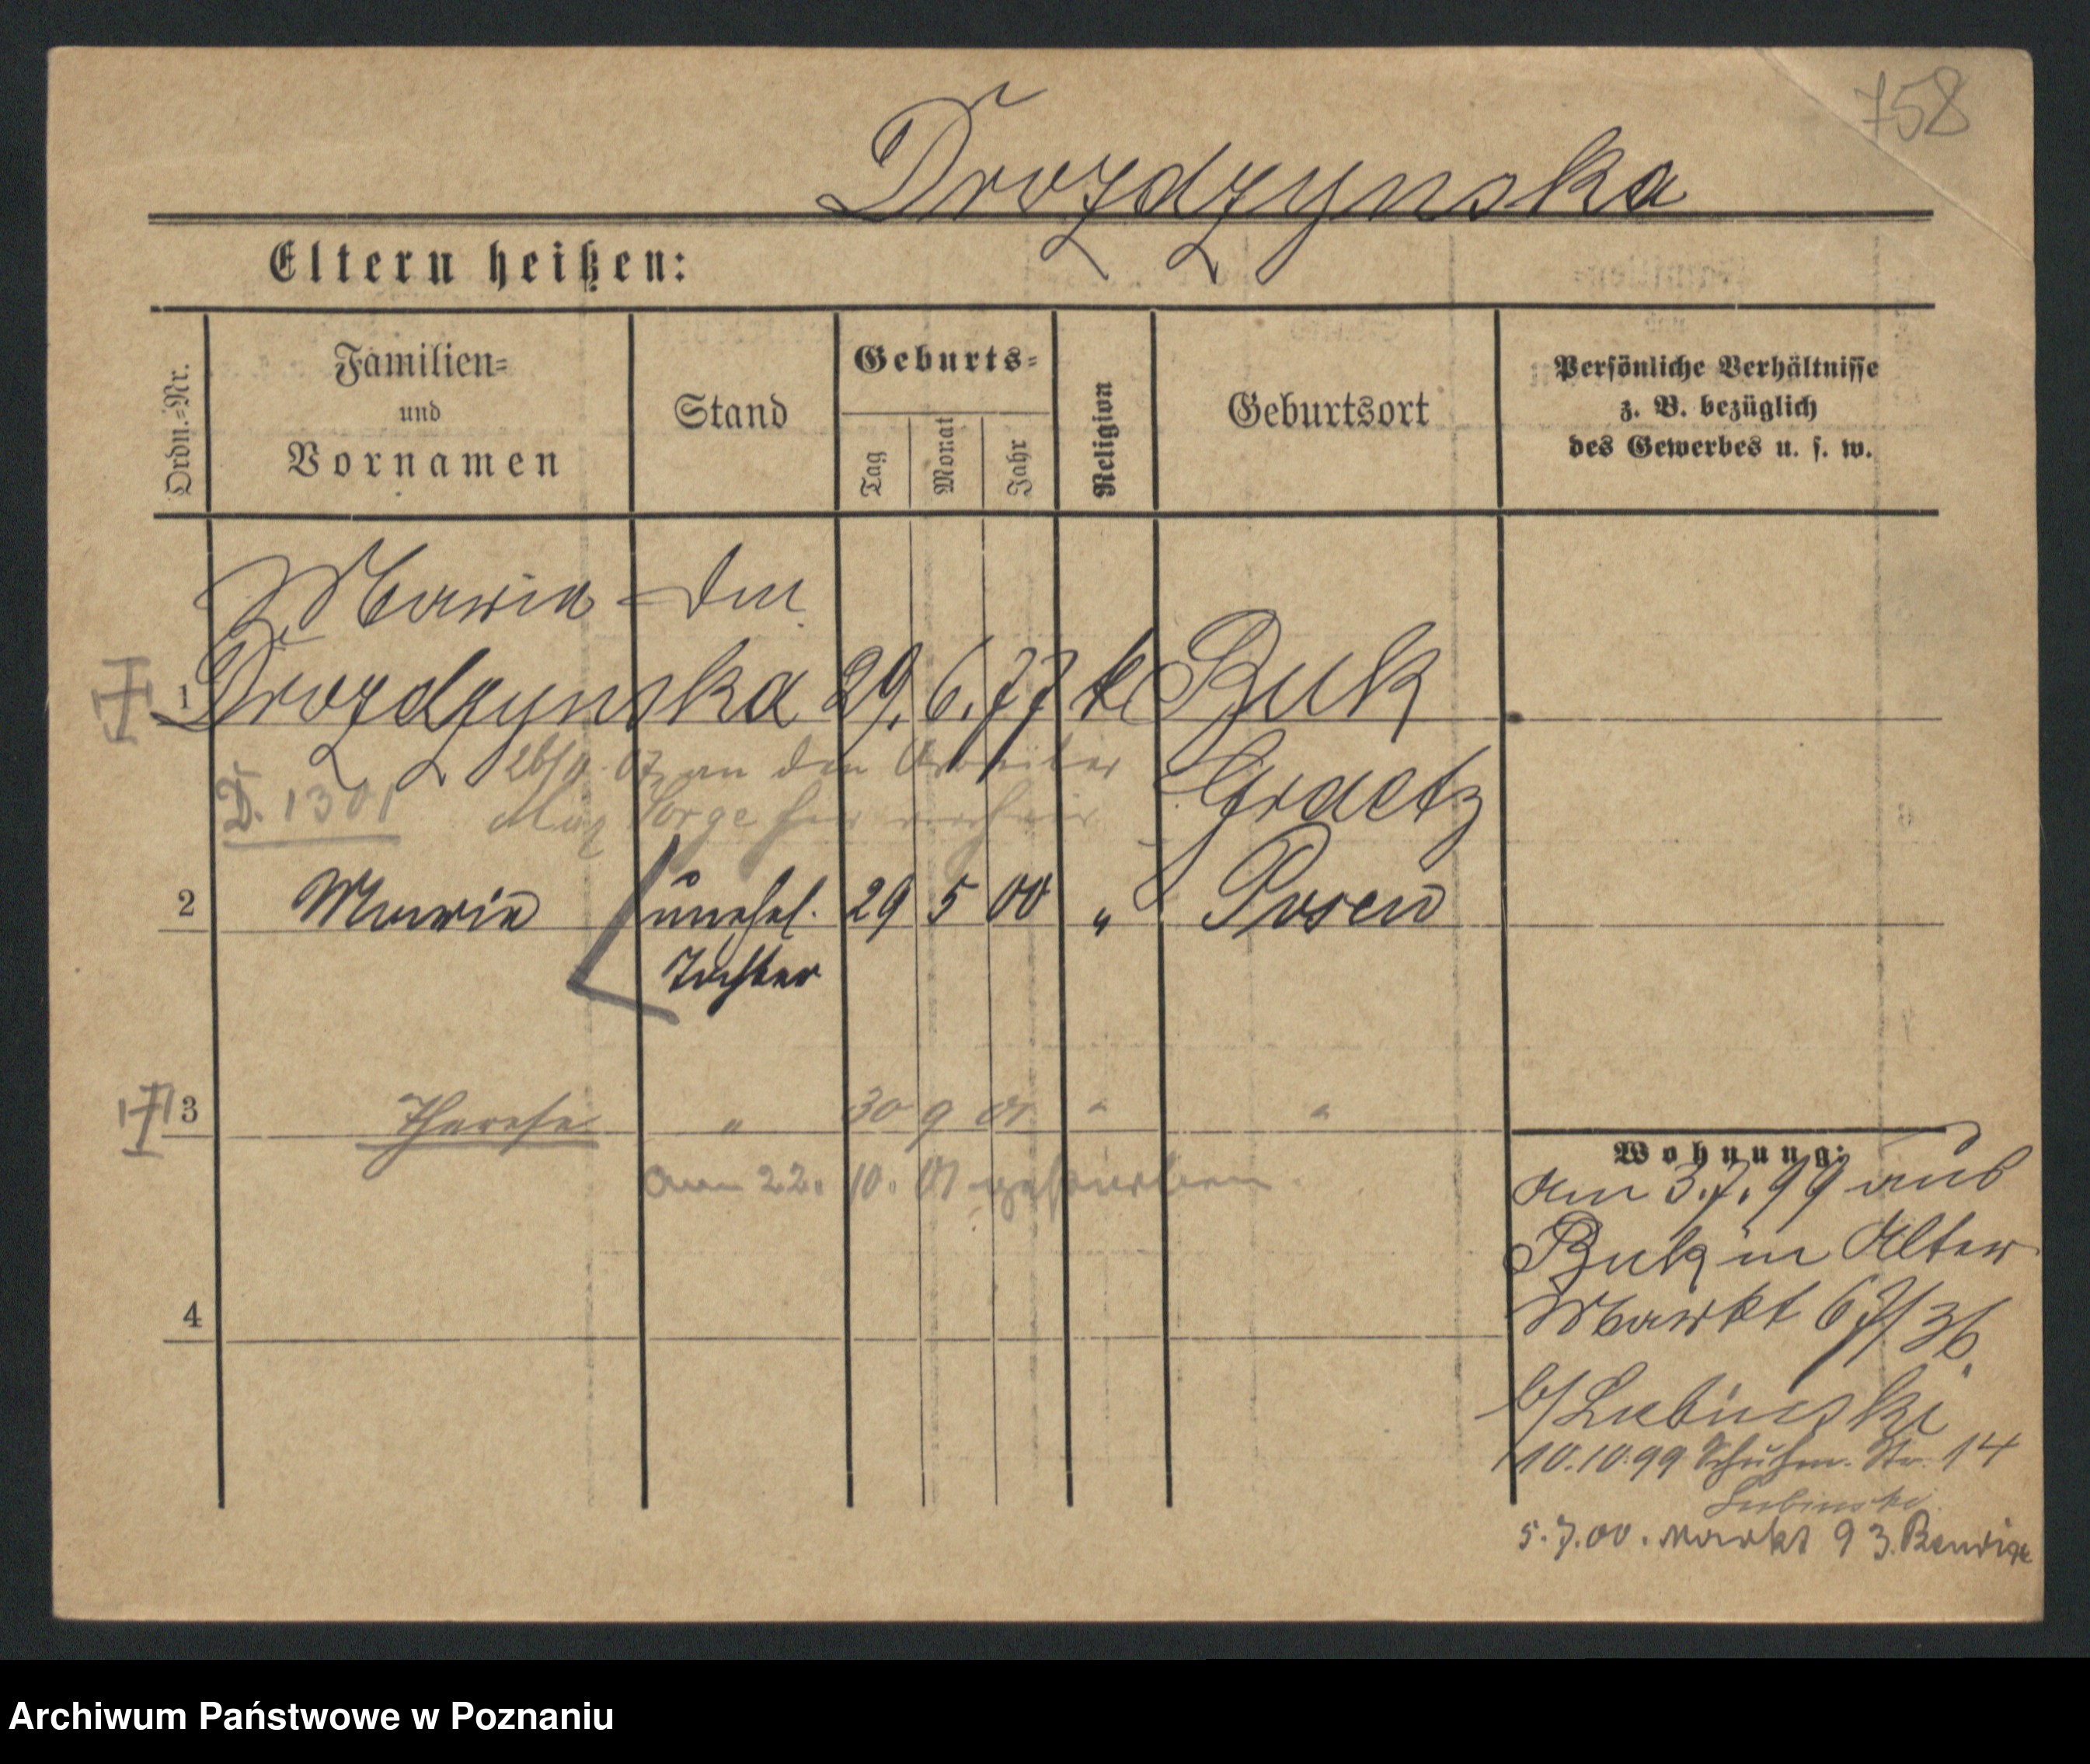 758
Drozdzynska
Eltern heißen:
Ordn.=Nr.
Familien=
und
Vornamen
Stand
Geburts=
Tag
Monat
Jahr
Religion
Geburtsort
Persönliche Verhältnisse
z. B. bezüglich
des Gewerbes u. s. w.
Maria
1 Drozdzynska 29. 6. 77 k Buk
an den Arbeiter
Graetz
D. 1301
2 Maria unehel. 29 5 00 " Posen
Tochter
3 Therese " 30 9 01 " "
am 22. 10. 01 gestorben
4
Wohnung:
am 3.7.99 aus
Buk in Alter
Markt 67/36
b/ Lubinski
10.10.99 Schuhm. Str. 14
Lubinski
5.7.00. Markt 93.
Archiwum Państwowe w Poznaniu